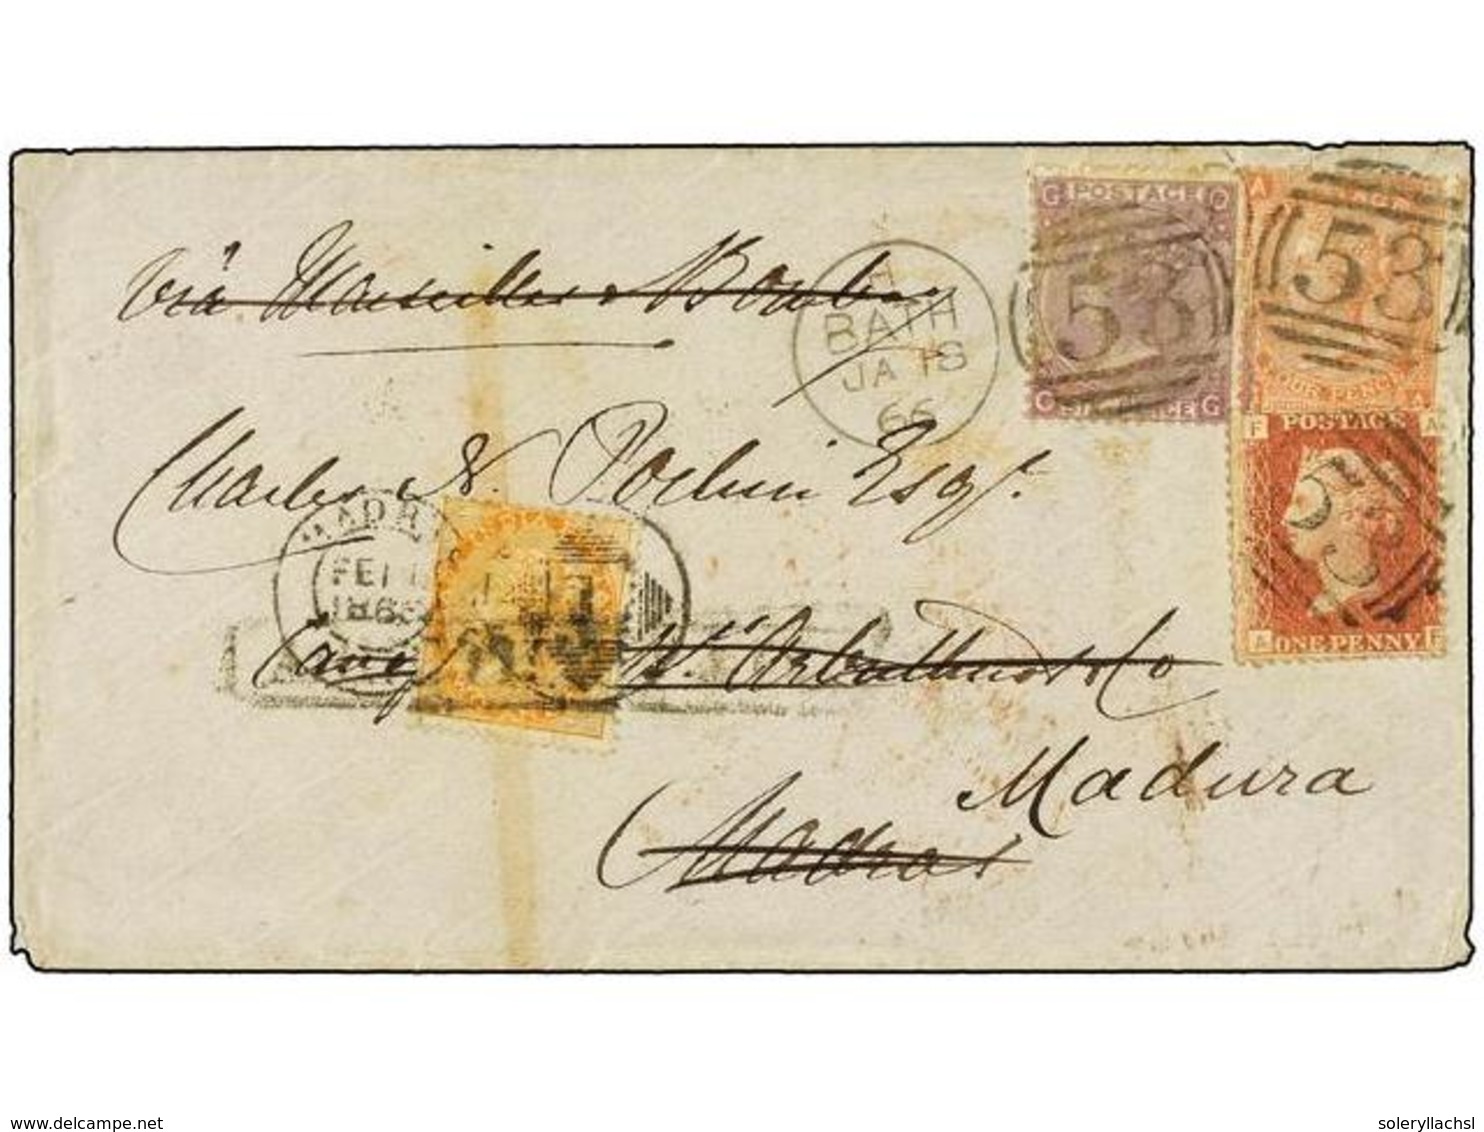 via Marseilles & Bombay
G POSTAGE O
O SIX PENCE G
53
A
53
FOUR PENCE A
BATH
JA 18
66
Charles N. Pochin Esqr.
F POSTAGE A
53
A ONE PENNY F
MADR
FE
1866
Care Arbuthnot & Co
Madura
Madras
www.delcampe.net
soleryllachsl